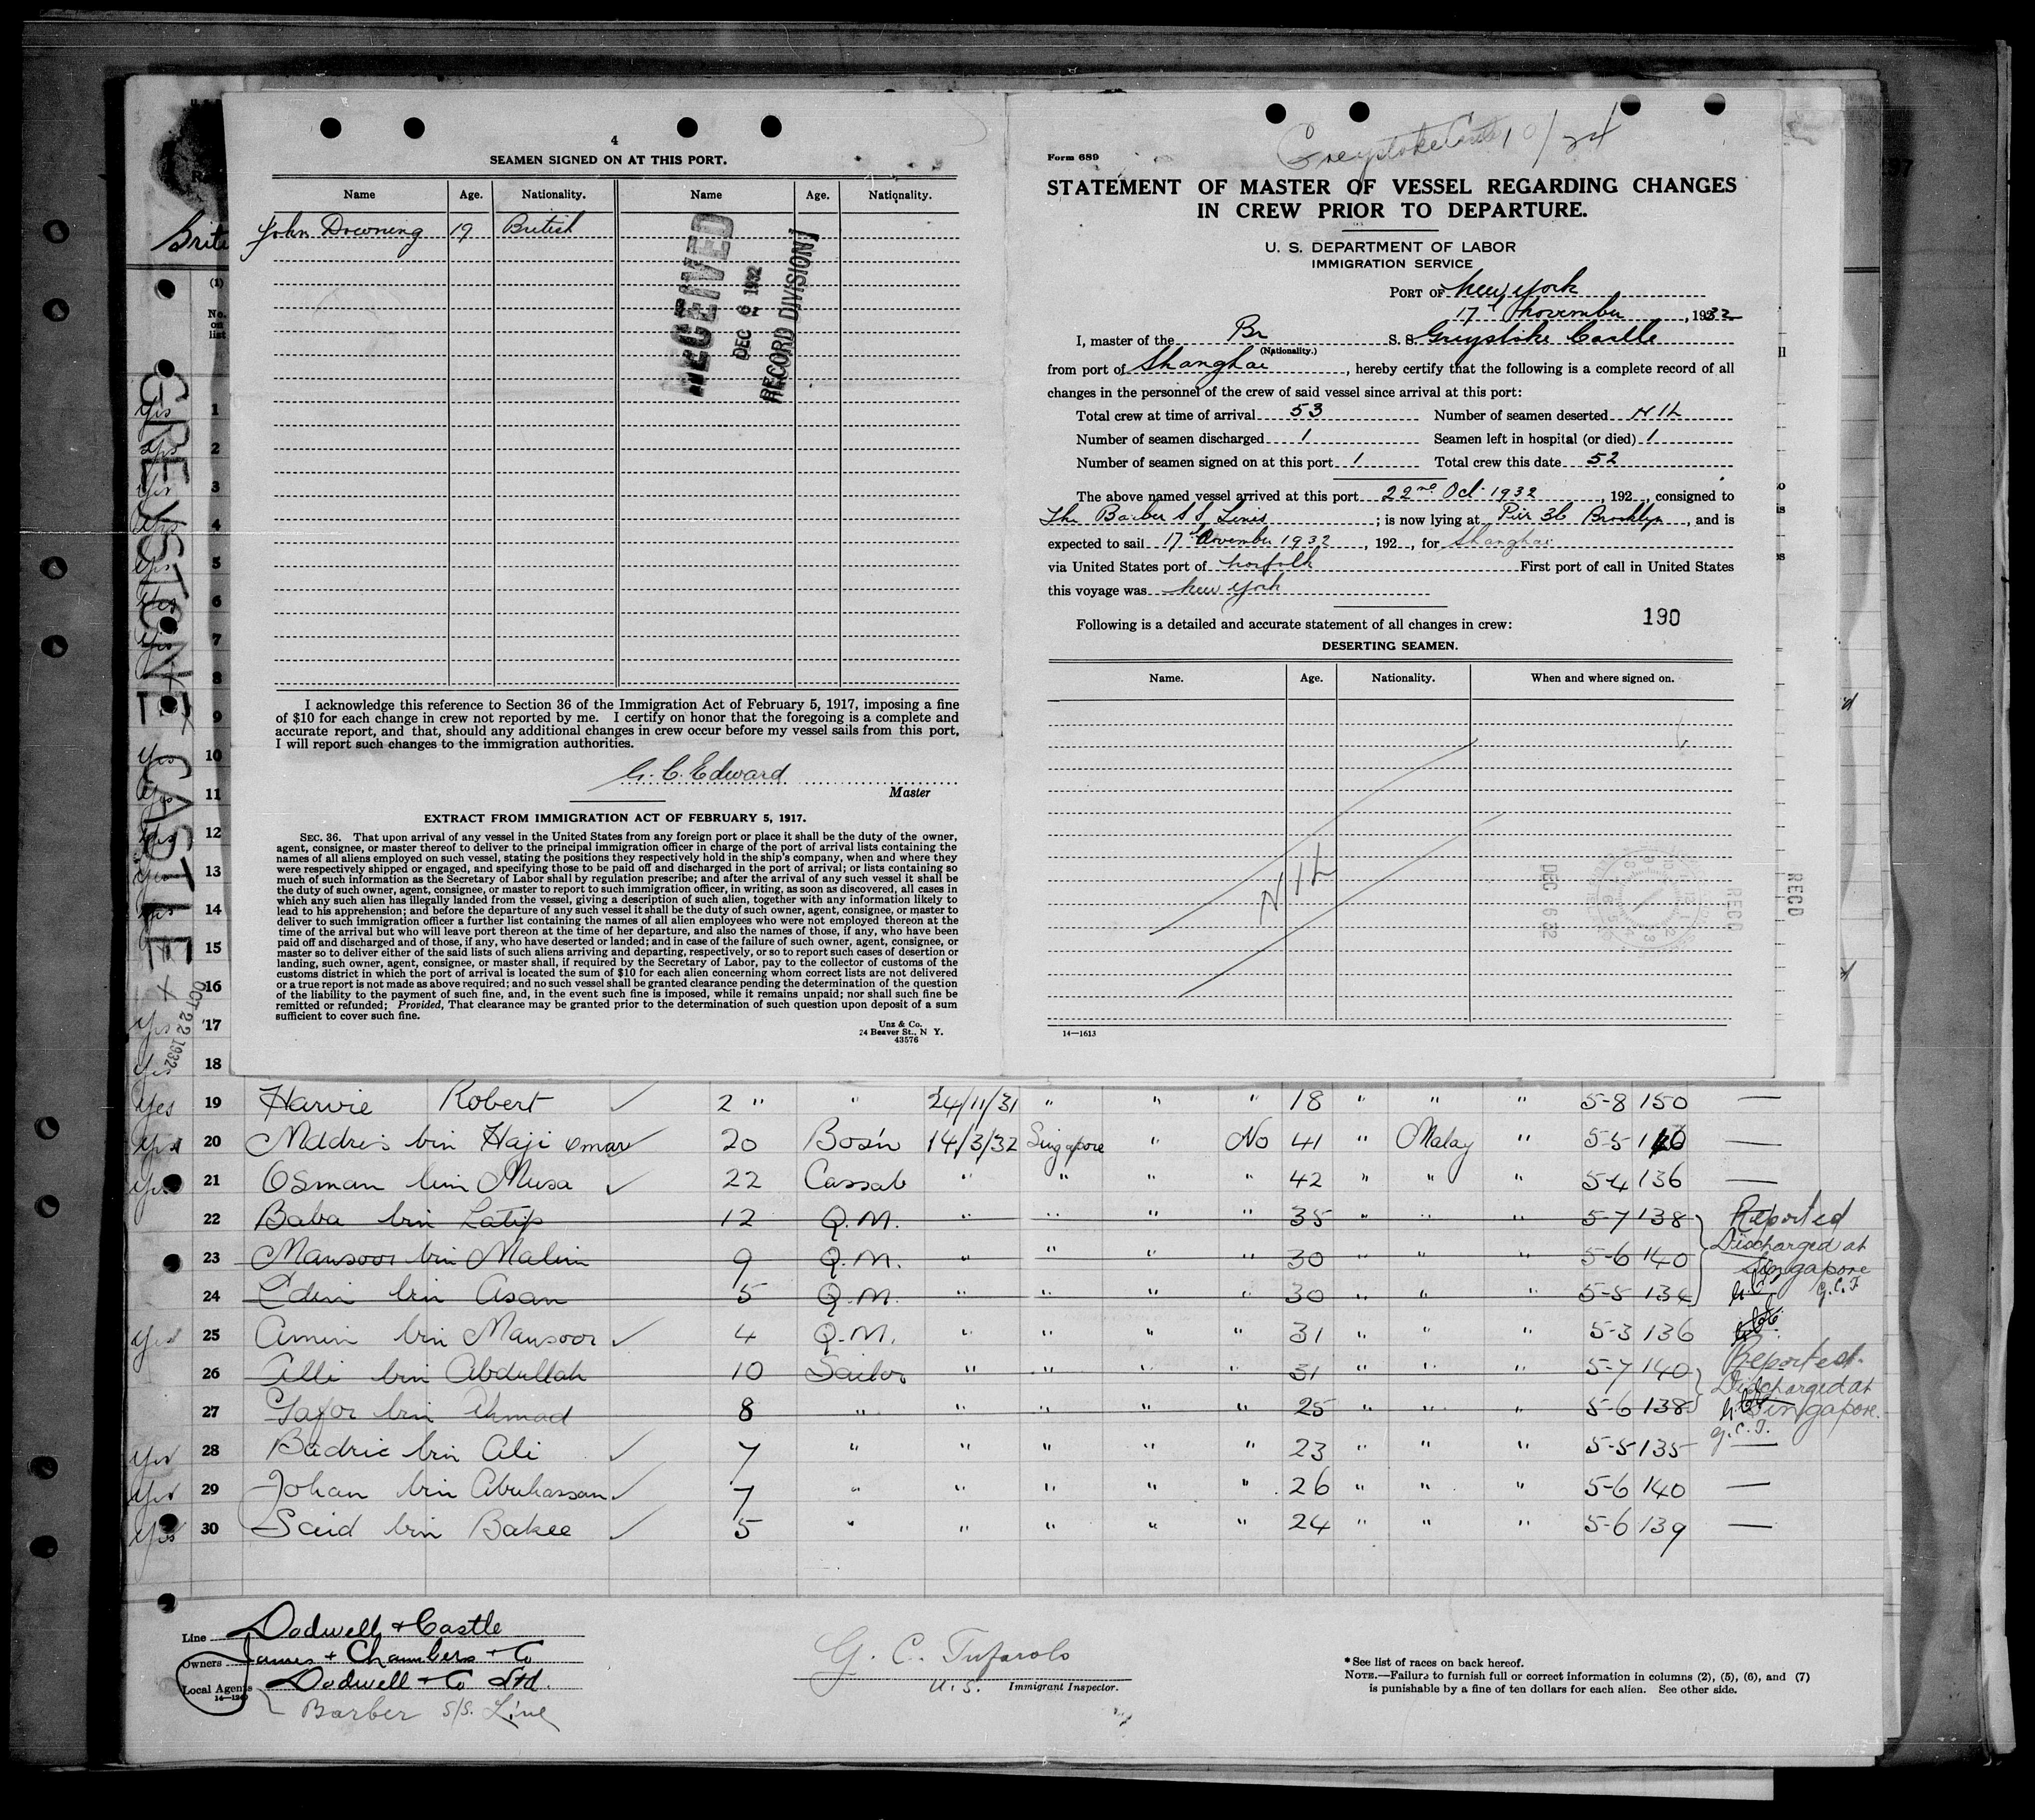 4
SEAMEN SIGNED ON AT THIS PORT.
Name Age. Nationality. Name Age. Nationality.
John Downing 19 British
RECEIVED
DEC 6 1932
RECORD DIVISION
I acknowledge this reference to Section 36 of the Immigration Act of February 5, 1917, imposing a fine
of $10 for each change in crew not reported by me. I certify on honor that the foregoing is a complete and
accurate report, and that, should any additional changes in crew occur before my vessel sails from this port,
I will report such changes to the immigration authorities.
G. C. Edward
Master
EXTRACT FROM IMMIGRATION ACT OF FEBRUARY 5, 1917.
SEC. 36. That upon arrival of any vessel in the United States from any foreign port or place it shall be the duty of the owner,
agent, consignee, or master thereof to deliver to the principal immigration officer in charge of the port of arrival lists containing the
names of all aliens employed on such vessel, stating the positions they respectively hold in the ship's company, when and where they
were respectively shipped or engaged, and specifying those to be paid off and discharged in the port of arrival; or lists containing so
much of such information as the Secretary of Labor shall by regulation prescribe; and after the arrival of any such vessel it shall be
the duty of such owner, agent, consignee, or master to report to such immigration officer, in writing, as soon as discovered, all cases in
which any such alien has illegally landed from the vessel, giving a description of such alien, together with any information likely to
lead to his apprehension; and before the departure of any such vessel it shall be the duty of such owner, agent, consignee, or master to
deliver to such immigration officer a further list containing the names of all alien employees who were not employed thereon at the
time of the arrival but who will leave port thereon at the time of her departure, and also the names of those, if any, who have been
paid off and discharged and of those, if any, who have deserted or landed; and in case of the failure of such owner, agent, consignee, or
master so to deliver either of the said lists of such aliens arriving and departing, respectively, or so to report such cases of desertion or
landing, such owner, agent, consignee, or master shall, if required by the Secretary of Labor, pay to the collector of customs of the
customs district in which the port of arrival is located the sum of $10 for each alien concerning whom correct lists are not delivered
or a true report is not made as above required; and no such vessel shall be granted clearance pending the determination of the question
of the liability to the payment of such fine, and, in the event such fine is imposed, while it remains unpaid; nor shall such fine be
remitted or refunded; Provided, That clearance may be granted prior to the determination of such question upon deposit of a sum
sufficient to cover such fine.
Unz & Co.
24 Beaver St., N Y.
43576
Greystoke Castle 10/24
Form 689
STATEMENT OF MASTER OF VESSEL REGARDING CHANGES
IN CREW PRIOR TO DEPARTURE.
U. S. DEPARTMENT OF LABOR
IMMIGRATION SERVICE
PORT OF New York
17 November, 1932
I, master of the Br S. S. Greystoke Castle
(Nationality.)
from port of Shanghai, hereby certify that the following is a complete record of all
changes in the personnel of the crew of said vessel since arrival at this port:
Total crew at time of arrival 53 Number of seamen deserted NIL
Number of seamen discharged 1 Seamen left in hospital (or died) 1
Number of seamen signed on at this port 1 Total crew this date 52
The above named vessel arrived at this port 22nd Oct. 1932, 192 , consigned to
The Barber S S Lines; is now lying at Pier 36 Brooklyn, and is
expected to sail 17th November 1932, 192 , for Shanghai
via United States port of Norfolk First port of call in United States
this voyage was New York
Following is a detailed and accurate statement of all changes in crew: 190
DESERTING SEAMEN.
Name. Age. Nationality. When and where signed on.
NIL
DEC 6 32
RECD
RECD
14—1613
Brit
(1)
No. on list
GREYSTOKE CASTLE
OCT 22 1932
Yes 1
Yes 2
Yes 3
Yes 4
Yes 5
Yes 6
Yes 7
8
9
Yes 10
Yes 11
Yes 12
Yes 13
Yes 14
15
16
Yes 17
Yes 18
Yes 19 Harvie Robert ✓ 2 " " 24/11/31 " " " 18 " " " 5-8 150 —
Yes 20 Mddris bin Haji Omar ✓ 20 Bos'n 14/3/32 Singapore " No 41 " Malay " 5-5 140 —
Yes 21 Osman bin Musa ✓ 22 Cassab " " " " 42 " " " 5-4 136 —
22 Baba bin Latip 12 Q.M. " " " " 35 " " " 5-7 138 Reported
23 Mansoor bin Malim 9 Q.M. " " " " 30 " " " 5-6 140 Discharged at Singapore
24 Edin bin Asan 5 Q.M. " " " " 30 " " " 5-5 134 G.C.T
Yes 25 Amin bin Mansoor ✓ 4 Q.M. " " " " 31 " " " 5-3 136
26 Alli bin Abdullah 10 Sailor " " " " 31 " " " 5-7 140 Reported
27 Gafor bin Ahmad 8 " " " " " 25 " " " 5-6 138 Discharged at Singapore. G.C.T.
Yes 28 Badric bin Ali ✓ 7 " " " " " 23 " " " 5-5 135 —
Yes 29 Johan bin Abuhassan ✓ 7 " " " " " 26 " " " 5-6 140 —
Yes 30 Said bin Bakee ✓ 5 " " " " " 24 " " " 5-6 139 —
Line Dodwell + Castle
Owners James + Chambers + Co
Local Agents Dodwell + Co Ltd.
14—1240
Barber S/S. Line
G. C. Tufarolo
U. S. Immigrant Inspector.
* See list of races on back hereof.
NOTE.—Failure to furnish full or correct information in columns (2), (5), (6), and (7)
is punishable by a fine of ten dollars for each alien. See other side.